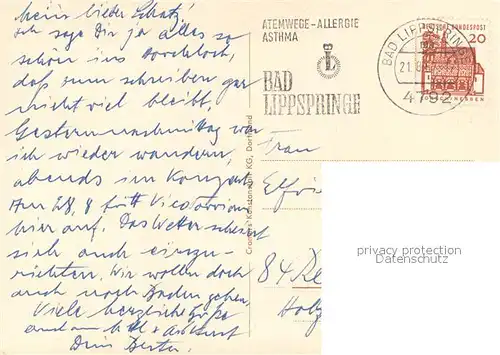 mein lieber Schatz!
ich sage Dir ja alles so
schön ins
daß zum schreiben gar
nicht viel bleibt,
Gesternnachmittag war
ich wieder wandern,
abends im Konzert
Am 28, 8 tritt Vico
hier auf. Das Wetter scheint
sich auch einzu-
richten, Wir wollen doch
auch noch Baden gehen,
Viele herzliche Grüße
und an
Dein
ATEMWEGE-ALLERGIE
ASTHMA
BAD
LIPPSPRINGE
BAD LIPPSPRINGE
21.8.
4792
DEUTSCHE BUNDESPOST
20
HESSEN
Cramers Kunstanstalt KG, Dortmund
Frau
Elfri
84 Re
Holz
privacy protection
Datenschutz